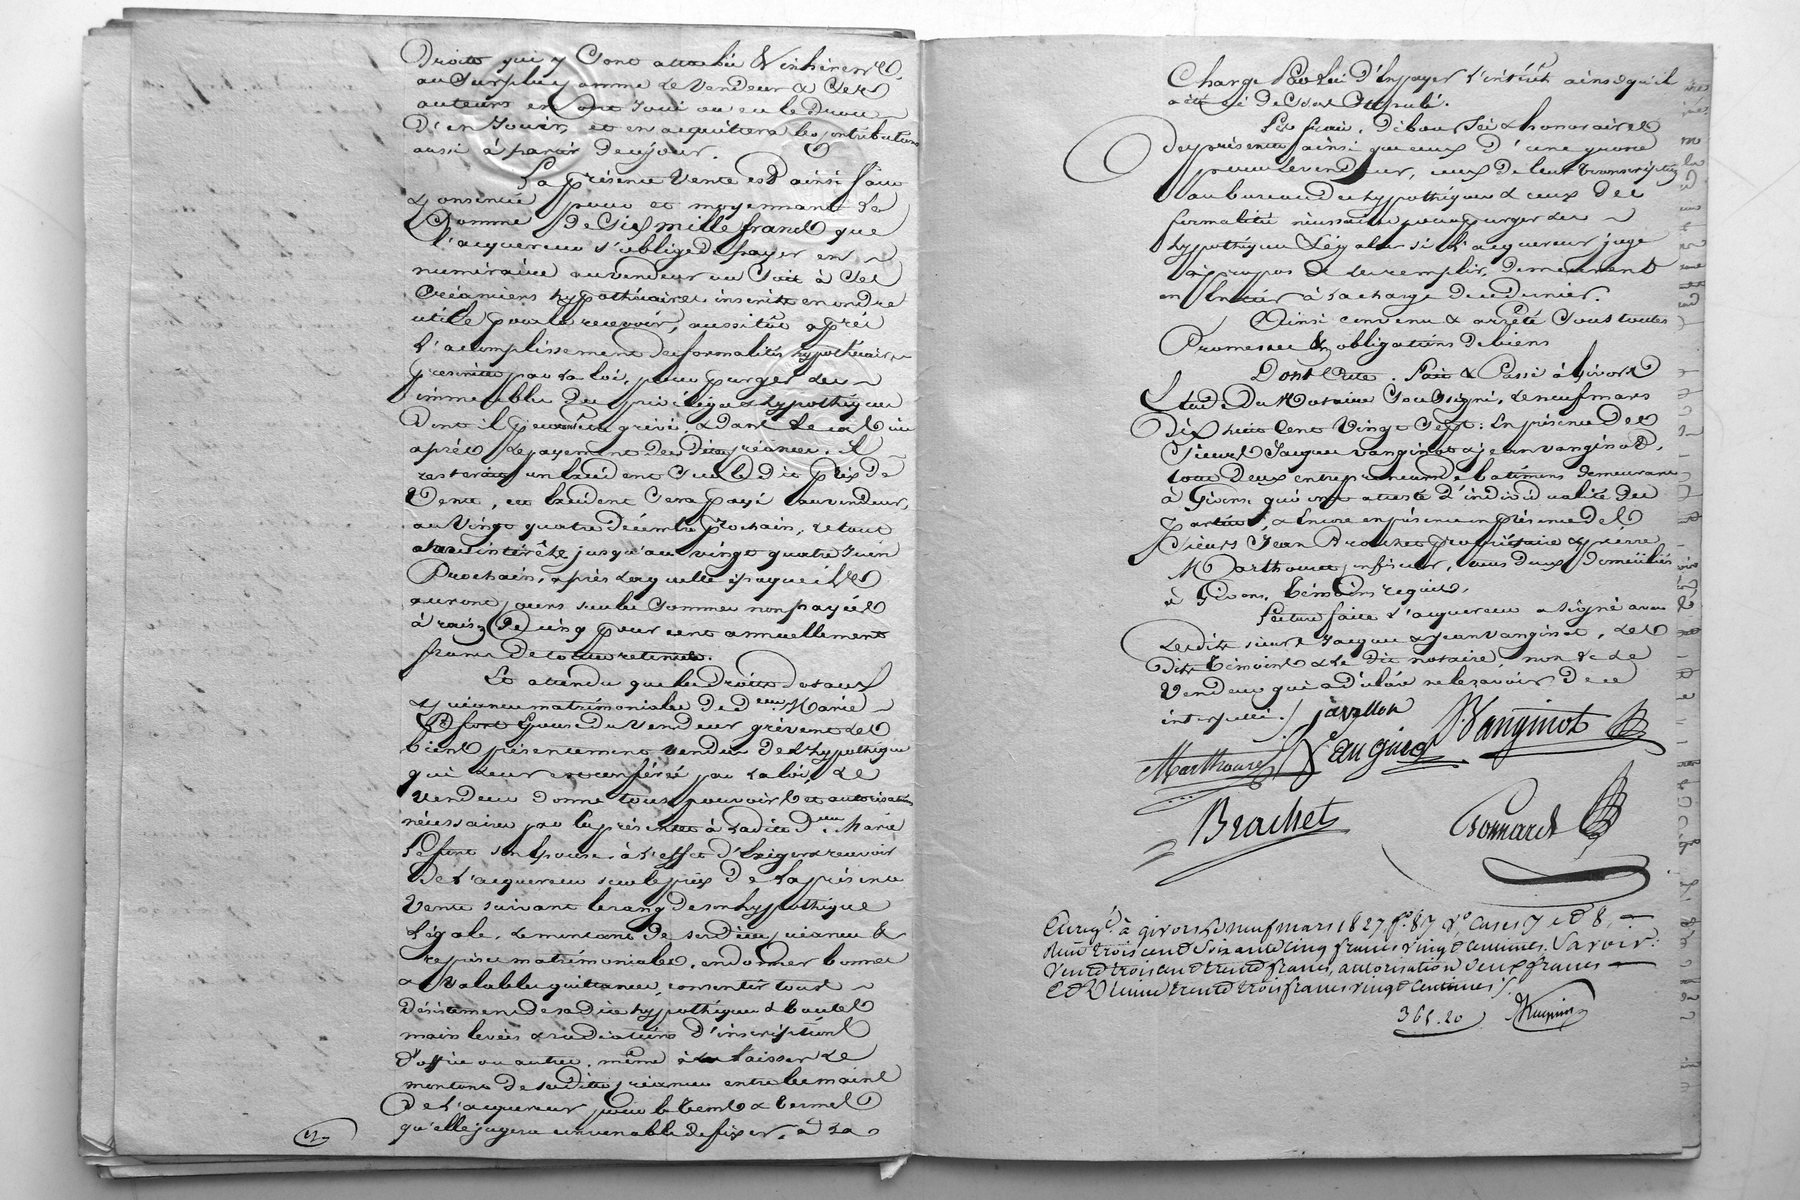 Droits qui y sont attachés & inhérents,
au surplus comme le vendeur & ses
auteurs en ont joui ou eu le Droit
D'en Jouir, et en acquittera les contributions
aussi à partir de ce jour.
La présente Vente est ainsi faite
& consentie pour et moyennant la
Somme De Six mille francs que
l'acquereur s'oblige de payer en
numéraire au vendeur ou soit à ses
Créanciers hypothécaires inscrits en ordre
utile pour le recevoir, aussitôt après
l'accomplissement des formalités hypothécaires
prescrites par la loi, pour purger les
immeubles des priviléges & hypothéques
Dont il peuvent être grévés, & dans le cas où
après le payement des Dites créances, il
resterait un excédent sur le dit prix de
Vente, cet excédent sera payé au vendeur,
au Vingt quatre Décembre prochain, le tout
sans intérêts jusqu'au vingt quatre Juin
Prochain, après laquelle époque ils
auront cours sur les sommes non payées
à raison De cinq pour cent annuellement
francs de toute retenue.
Et attendu que les Droits dotaux
& créances matrimoniales de d.me Marie
Lafont Epouse du Vendeur grévent les
biens présentement vendus de l'hypothéque
qui leur est conférée par la loi, le
vendeur donne tous pouvoirs et autorisation
nécessaires par les présentes à ladite d.me Marie
Lafont son épouse, à l'effet d'Exiger & recevoir
De l'acquereur sur le prix De la présente
Vente suivant le rang de son hypothéque
Légale, le montant de ses dites créances &
reprises matrimoniales, en donner bonnes
& Valables quittances, consentir tous
Désistements de sa dite hypothéque & toutes
main levées & radiations D'inscriptions
d'office ou autres, même à laisser le
montant de ses dittes créances entre les mains
De l'acquereur pour le tems & termes
qu'elle jugera convenable de fixer, à la
Charge Par lui D'En payer l'intérêt ainsi qu'il
a été ci Dessus stipulé.
Les frais, Déboursés & honoraires
Des présentes ainsi que ceux D'une grosse
pour le vendeur, ceux de leur transcription
au bureau des hypothéques & ceux Des
formalités nécessaires pour purger les
hypothéques Légales si l'acquereur juge
à propos de les remplir, demeurent
en Entier à la charge de ce dernier.
Ainsi convenu & arrêté sous toutes
Promesses & obligations de biens
Dont Acte. Fait & Passé à Givors
Etude Du Notaire Soussigné, le neuf mars
Dix huit Cent Vingt Sept: En présence Des
Sieurs Jacques vanginot & jean vanginot,
tous Deux entrepreneurs de batimens demeurans
à Givors, qui ont attesté l'individualité des
parties, & Encore en présence en présence Des
Sieurs Jean Brachet propriétaire & pierre
Marthouret confiseur, tous deux Domiciliés
à Givors, témoins requis.
Lecture faite l'acquereur a signé avec
Lesdits sieurs Jacques & jean vanginot, les
Dits témoins & le dit notaire, non & le
Vendeur qui a déclaré ne le savoir De ce
interpellé. / javellon
Marthouret Vanginot J. Vanginot
Brachet Bonnard
Enreg.é à givors le neuf mars 1827 f.o 87 v.o Cases 7 et 8,
Reçu trois cent soixante cinq francs vingt centimes. Savoir:
vente trois cent trente francs, autorisation deux francs
et dixième trente trois francs vingt centimes /.
365.20